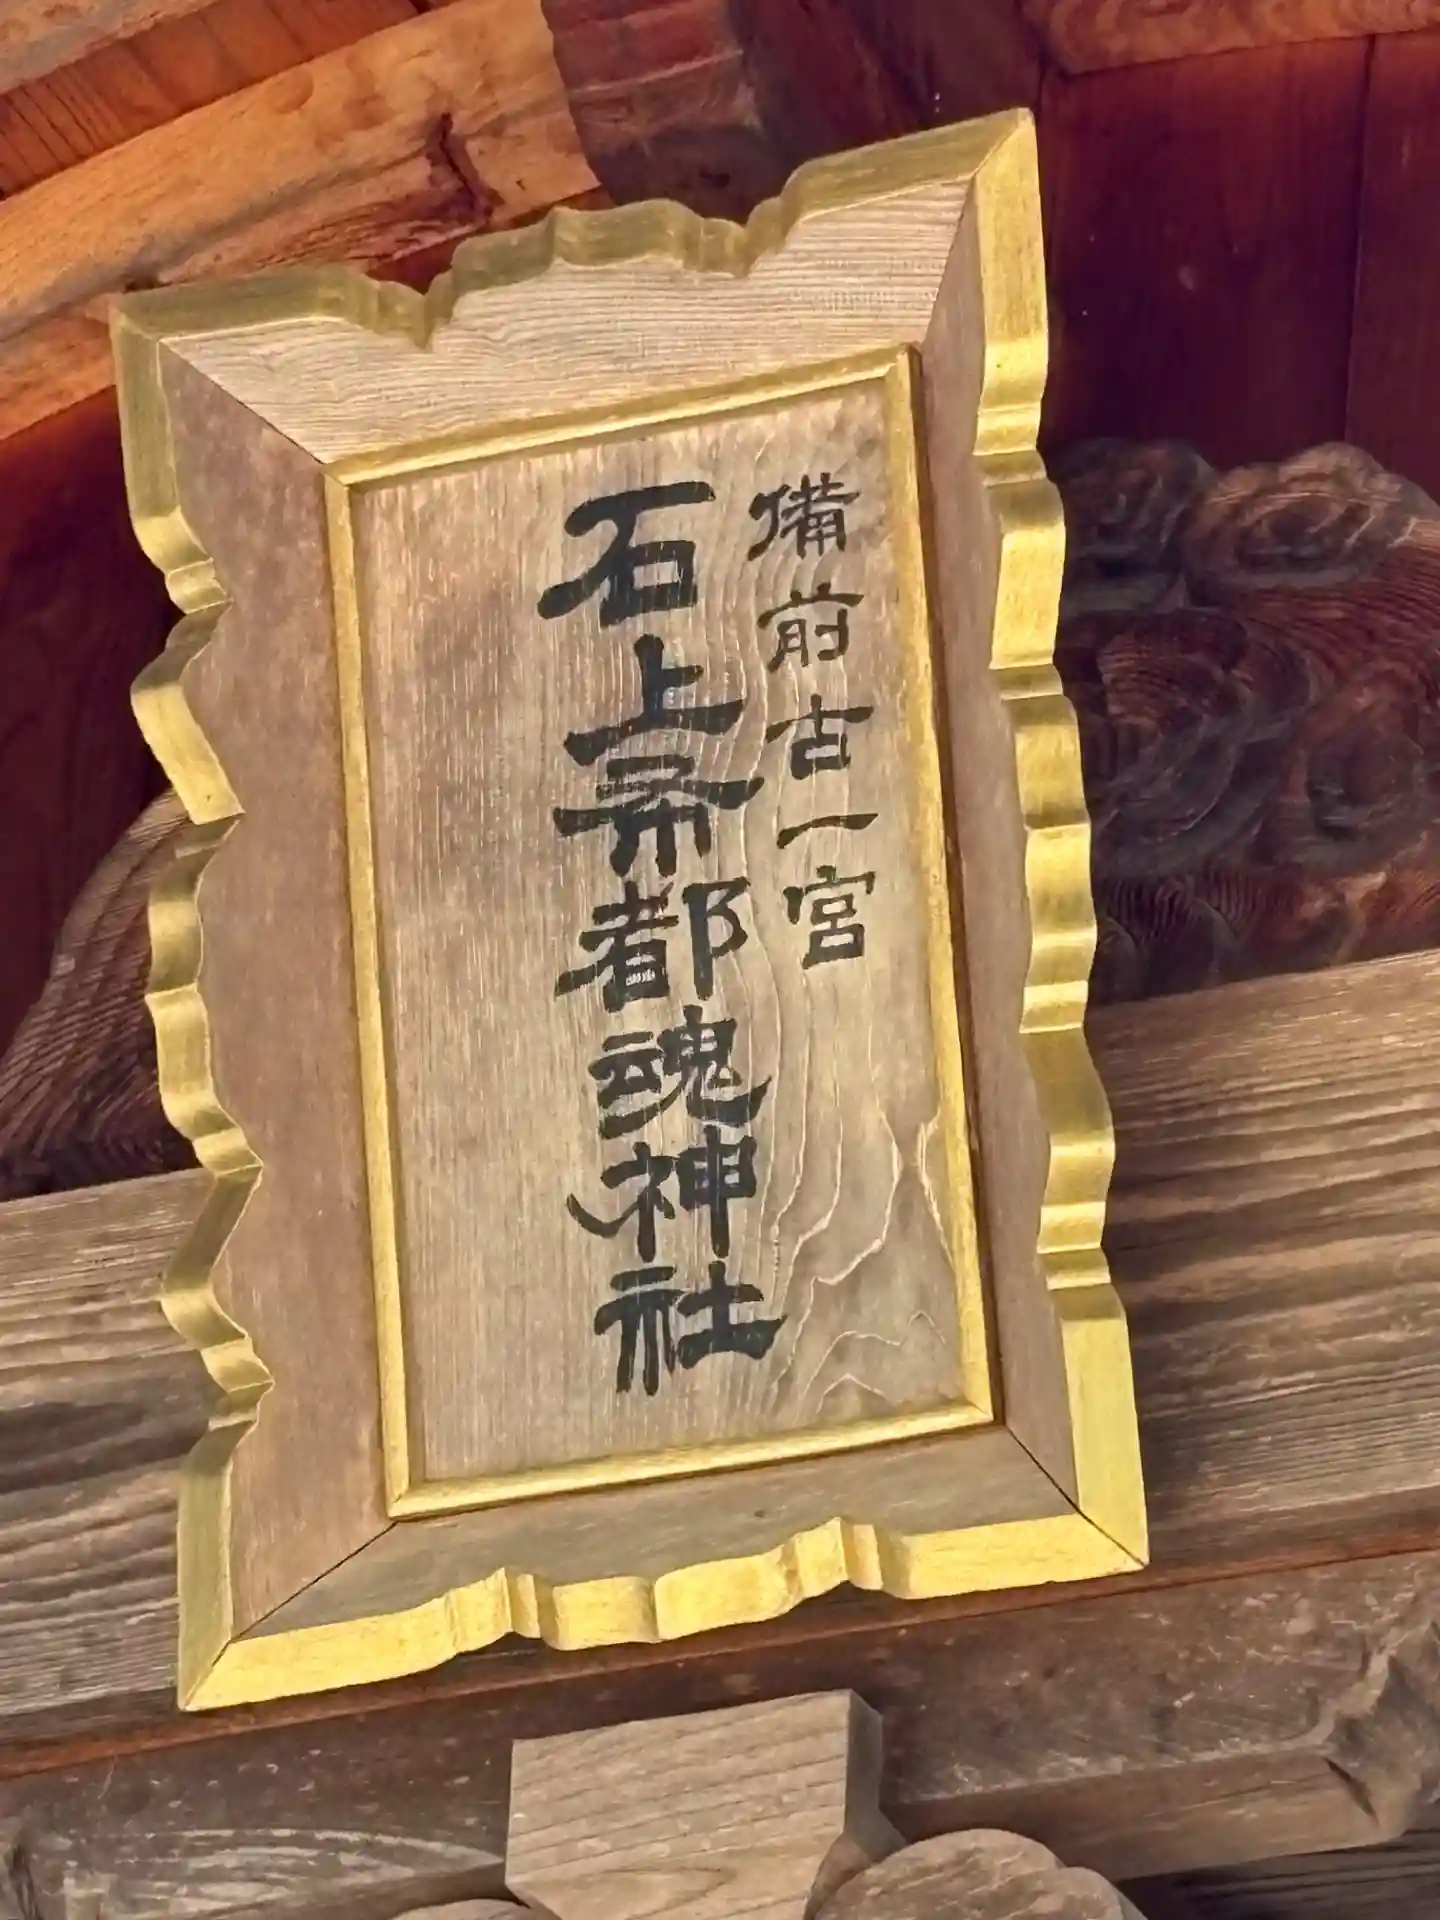 備前古一宮
石上布都魂神社